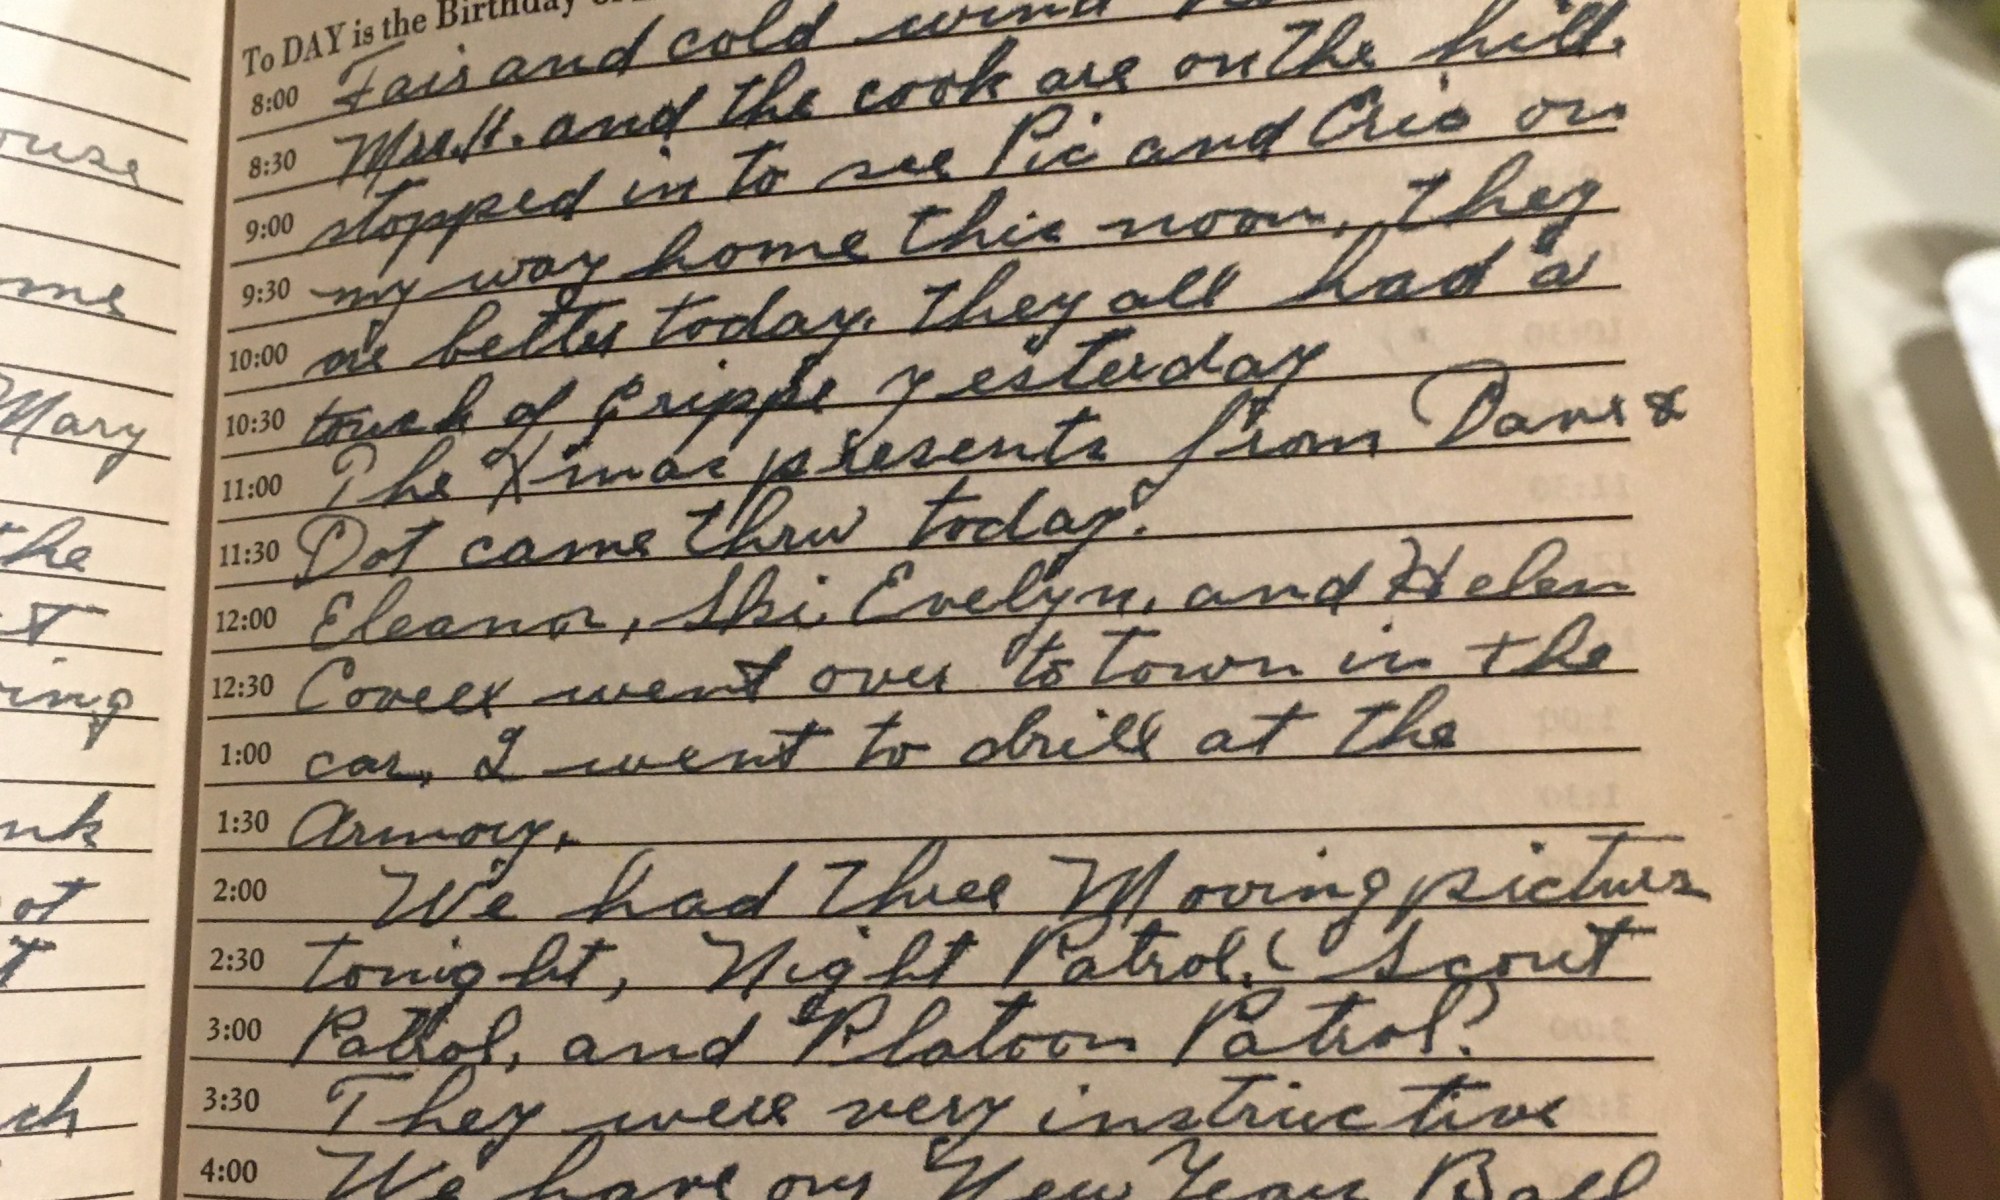 To DAY is the Birthday
8:00 Fair and cold wind
8:30 Mrs. H. and the cook are on the hill.
9:00 stopped in to see Pic and Cris on
9:30 my way home this noon, they
10:00 are better today. They all had a
10:30 touch of Grippe yesterday
11:00 The Xmas presents from Dave &
11:30 Dot came thru today.
12:00 Eleanor, Ski, Evelyn, and Helen
12:30 went over to town in the
1:00 car, I went to drill at the
1:30 Armory.
2:00 We had three Moving pictures
2:30 tonight, Night Patrol, Scout
3:00 Patrol, and "Platoon Patrol"
3:30 They were very instructive
4:00 We have our New Year Ball
ouse
me
Mary
the
ing
nk
ot
ch